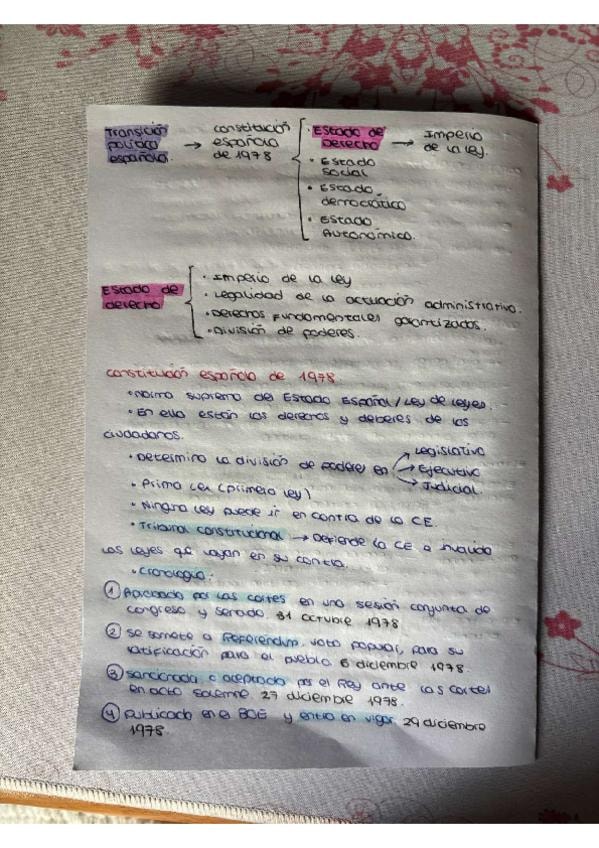 Transición política española. → constitución española de 1978
• Estado de Derecho → Imperio de la ley.
• Estado Social
• Estado democrático
• Estado Autonómico.
Estado de derecho
• Imperio de la ley
• Legalidad de la actuación administrativa.
• Derechos fundamentales garantizados.
• División de poderes.
Constitución española de 1978.
• Norma suprema del Estado Español / Ley de leyes.
• En ella están los derechos y deberes de los
ciudadanos.
• Determina la división de poderes en → Legislativo
→ Ejecutivo
→ Judicial.
• Prima Lex (primera ley)
• Ninguna ley puede ir en contra de la CE.
• Tribunal constitucional → Defiende la CE e invalida
las leyes que vayan en su contra.
• Cronología:
① Aprobado por las cortes en una sesión conjunta de
congreso y senado. 31 octubre 1978
② Se somete a Referéndum, voto popular, para su
ratificación para el pueblo 6 diciembre 1978.
③ sancionada o aceptado por el Rey ante las cortes
en acto solemne. 27 diciembre 1978.
④ publicado en el BOE y entra en vigor 29 diciembre
1978.